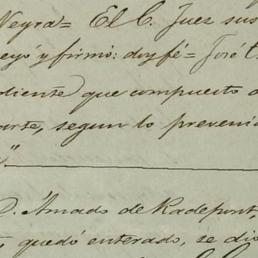 Neyra= El C. Juez sus
leyó y firmó: doy fé= José
diente que compuesto
arte, segun lo preveni
D. Amado de Radepont,
quedó enterado, se dio